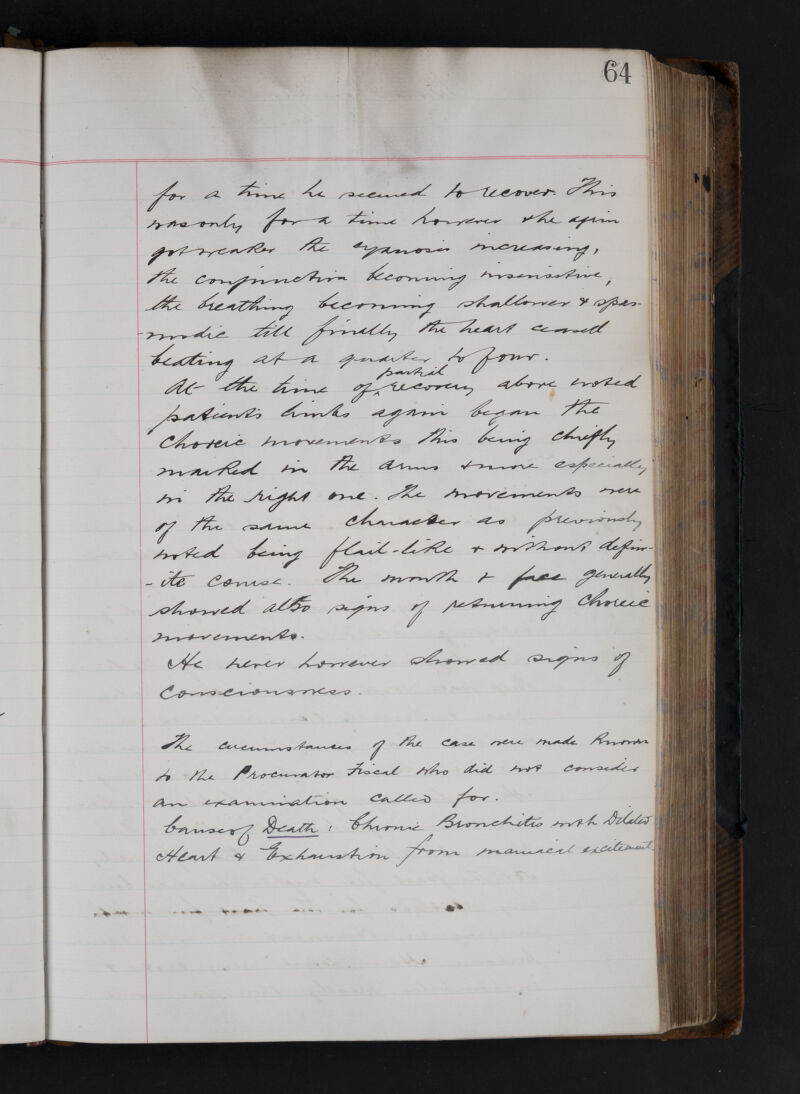 64
for a time he seemed to recover. This
was only for a time however & he again
got weaker the cyanosis increasing,
the conjunctiva becoming insensitive,
the breathing becoming shallower & spas-
-modic till finally the heart ceased
beating at a quarter to four.
partial
At the time of recovery above noted
patients limbs again began the
choreic movements this being chiefly
marked in the arms & more especially
in the right one. The movements were
of the same character as previously
noted being flail-like & without defin-
-ite course. The mouth & face generally
showed also signs of returning choreic
movements.
He never however showed signs of
consciousness.
The circumstances of the case were made known
to the Procurator Fiscal who did not consider
an examination called for.
Cause of Death: Chronic Bronchitis with Dilated
Heart & Exhaustion from maniacal excitement